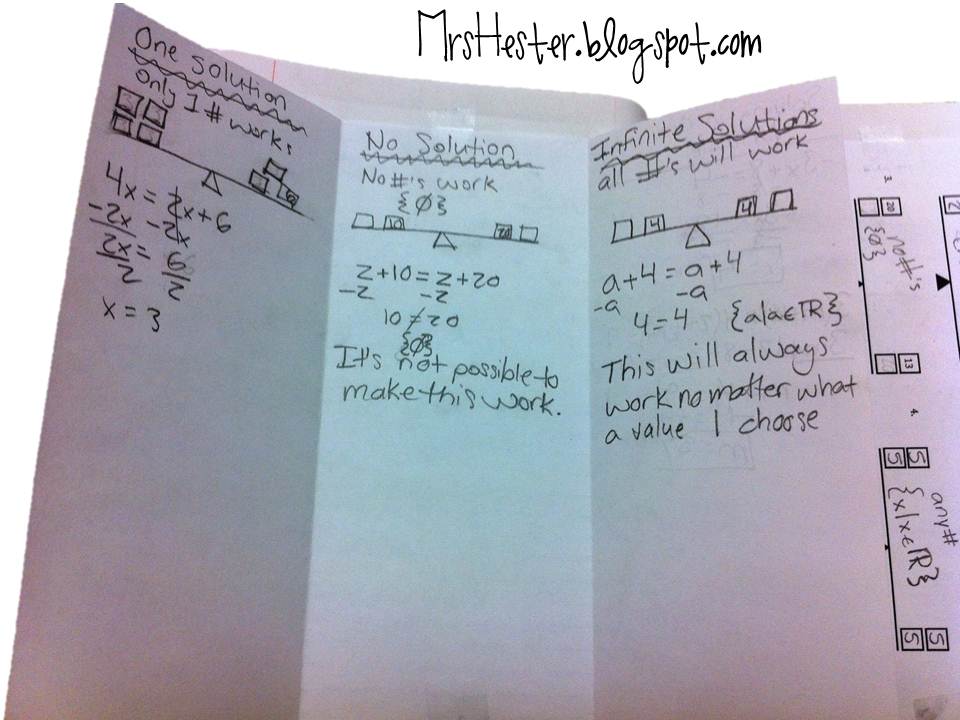 MrsHester.blogspot.com
One Solution
only 1 # works
6
4x = 2x + 6
-2x -2x
2x = 6
2 2
x = 3
No Solution
No #'s work
{Ø}
10 20
z+10 = z+20
-z -z
10 ≠ 20
{Ø}
It's not possible to
make this work.
Infinite Solutions
all #'s will work
4 4
a+4 = a+4
-a -a
4 = 4 {a|a∈ℝ}
This will always
work no matter what
a value I choose
3.
20
no #'s
{Ø}
13
4.
5 5
any #
{x|x∈ℝ}
5 5
2